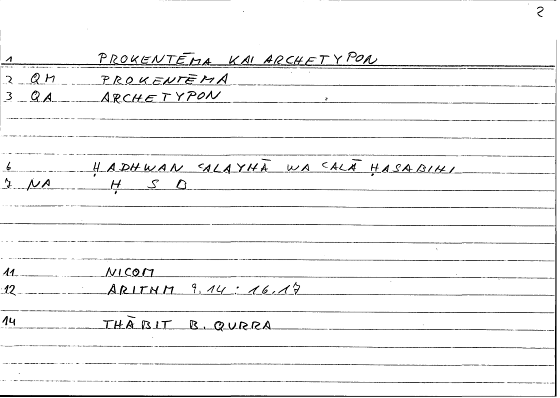 2
1 PROKENTĒMA KAI ARCHETYPON
2 QM PROKENTĒMA
3 QA ARCHETYPON
6 ḤADHWAN ʿALAYHĀ WA ʿALĀ ḤASABIHI
7 NA Ḥ S B
11 NICOM
12 ARITHM 9.14 : 16.17
14 THĀBIT B. QURRA